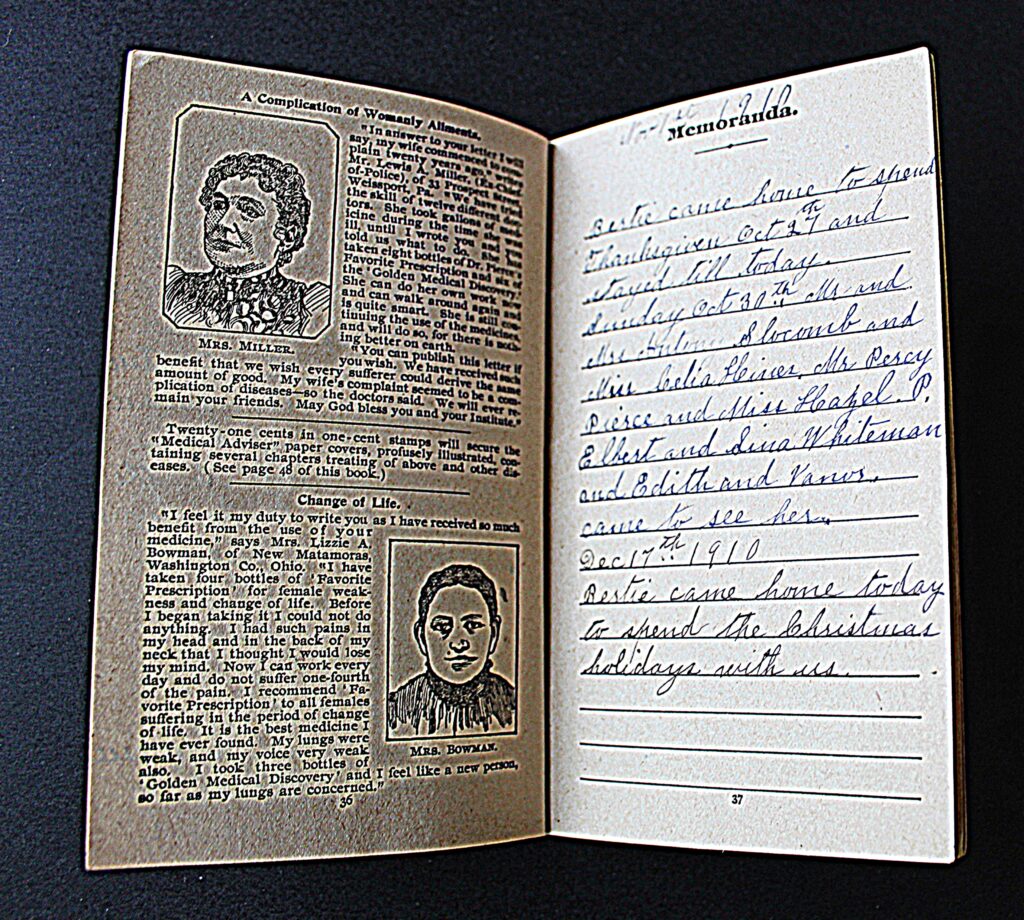 A Complication of Womanly Ailments.
"In answer to your letter I will
say, my wife commenced to com-
plain twenty years ago," writes
Mr. Lewis A. Miller, (Ex-Chief-
of-Police), of 33 Prospect Street,
Weissport, Pa. "We have tried
the skill of twelve different doc-
tors. She took gallons of med-
icine during the time she was
ill, until I wrote you and you
told us what to do. She has
taken eight bottles of Dr. Pierce's
Favorite Prescription and six of
the 'Golden Medical Discovery.'
She can do her own work now
and can walk around again and
is quite smart. She is still con-
tinuing the use of the medicines,
and will do so for there is noth-
ing better on earth.
MRS. MILLER.
"You can publish this letter if
you wish. We have received such
benefit that we wish every sufferer could derive the same
amount of good. My wife's complaint seemed to be a com-
plication of diseases—so the doctors said. We will ever re-
main your friends. May God bless you and your Institute."
Twenty-one cents in one-cent stamps will secure the
"Medical Adviser" paper covers, profusely illustrated, con-
taining several chapters treating of above and other dis-
eases. (See page 48 of this book.)
Change of Life.
"I feel it my duty to write you as I have received so much
benefit from the use of your
medicine," says Mrs. Lizzie A.
Bowman, of New Matamoras,
Washington Co., Ohio. "I have
taken four bottles of 'Favorite
Prescription' for female weak-
ness and change of life. Before
I began taking it I could not do
anything. I had such pains in
my head and in the back of my
neck that I thought I would lose
my mind. Now I can work every
day and do not suffer one-fourth
of the pain. I recommend 'Fa-
vorite Prescription' to all females
suffering in the period of change
of life. It is the best medicine I
have ever found. My lungs were
weak, and my voice very weak
also. I took three bottles of
'Golden Medical Discovery' and I feel like a new person,
so far as my lungs are concerned."
MRS. BOWMAN.
36
Memoranda.
Bertie came home to spend
Thanksgiven Oct 27th and
stayed till today.
Sunday Oct 30th Mr and
Mrs Slocomb and
Miss Celia Hines, Mr. Percy
Pierce and Miss Hazel. P.
Elbert and Sina Whiteman
and Edith and
came to see her.
Dec 17th 1910
Bertie came home today
to spend the Christmas
holidays with us.
37